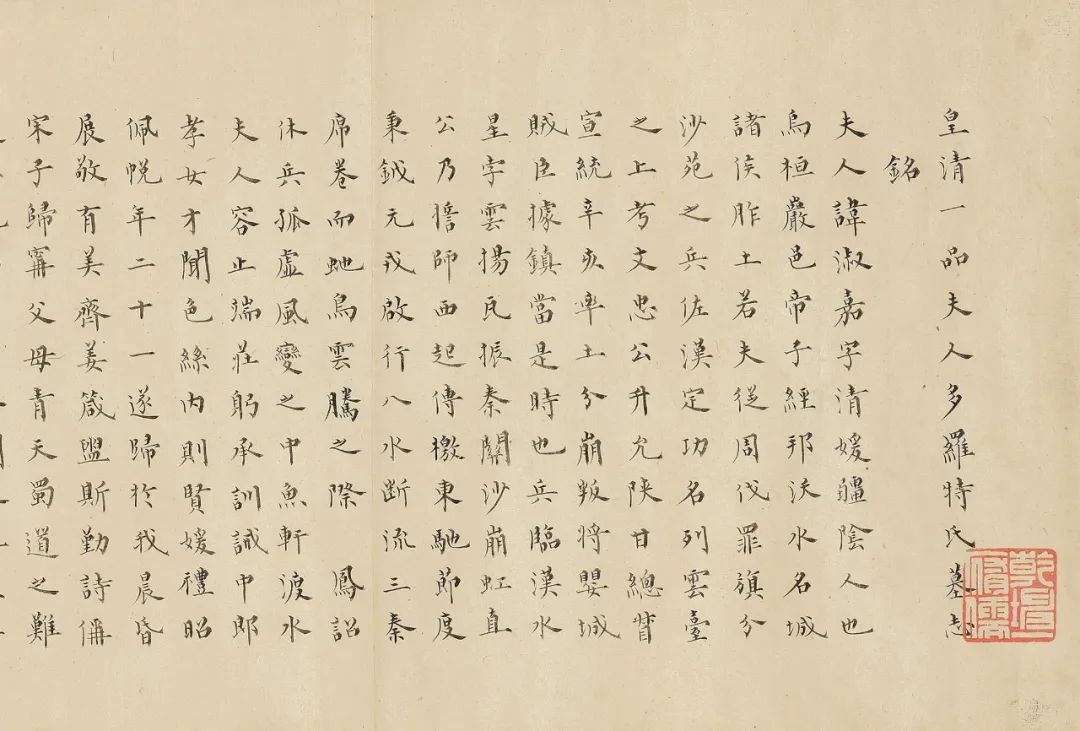 皇清一品夫人多羅特氏墓志
銘
夫人諱淑嘉字清媛疆陰人也
烏桓嚴邑帝子經邦沃水名城
諸侯胙土若夫從周伐罪旗分
沙苑之兵佐漢定功名列雲臺
之上考文忠公升允陝甘總督
宣統辛亥率土分崩叛將嬰城
賊臣據鎮當是時也兵臨漢水
星字雲揚瓦振秦關沙崩虹直
公乃擔師西起傳檄東馳節度
秉鉞元戎啟行八水斷流三秦
席卷而虵鳥雲騰之際 鳳詔
休兵孤虛風變之中魚軒渡水
夫人容止端莊躬承訓誡中郎
孝女才聞色絲內則賢媛禮昭
佩帨年二十一遂歸於我晨昏
展敬有美齊姜箴盥斯勤詩偁
宋子歸寗父母青天蜀道之難
乾堨
脩儒